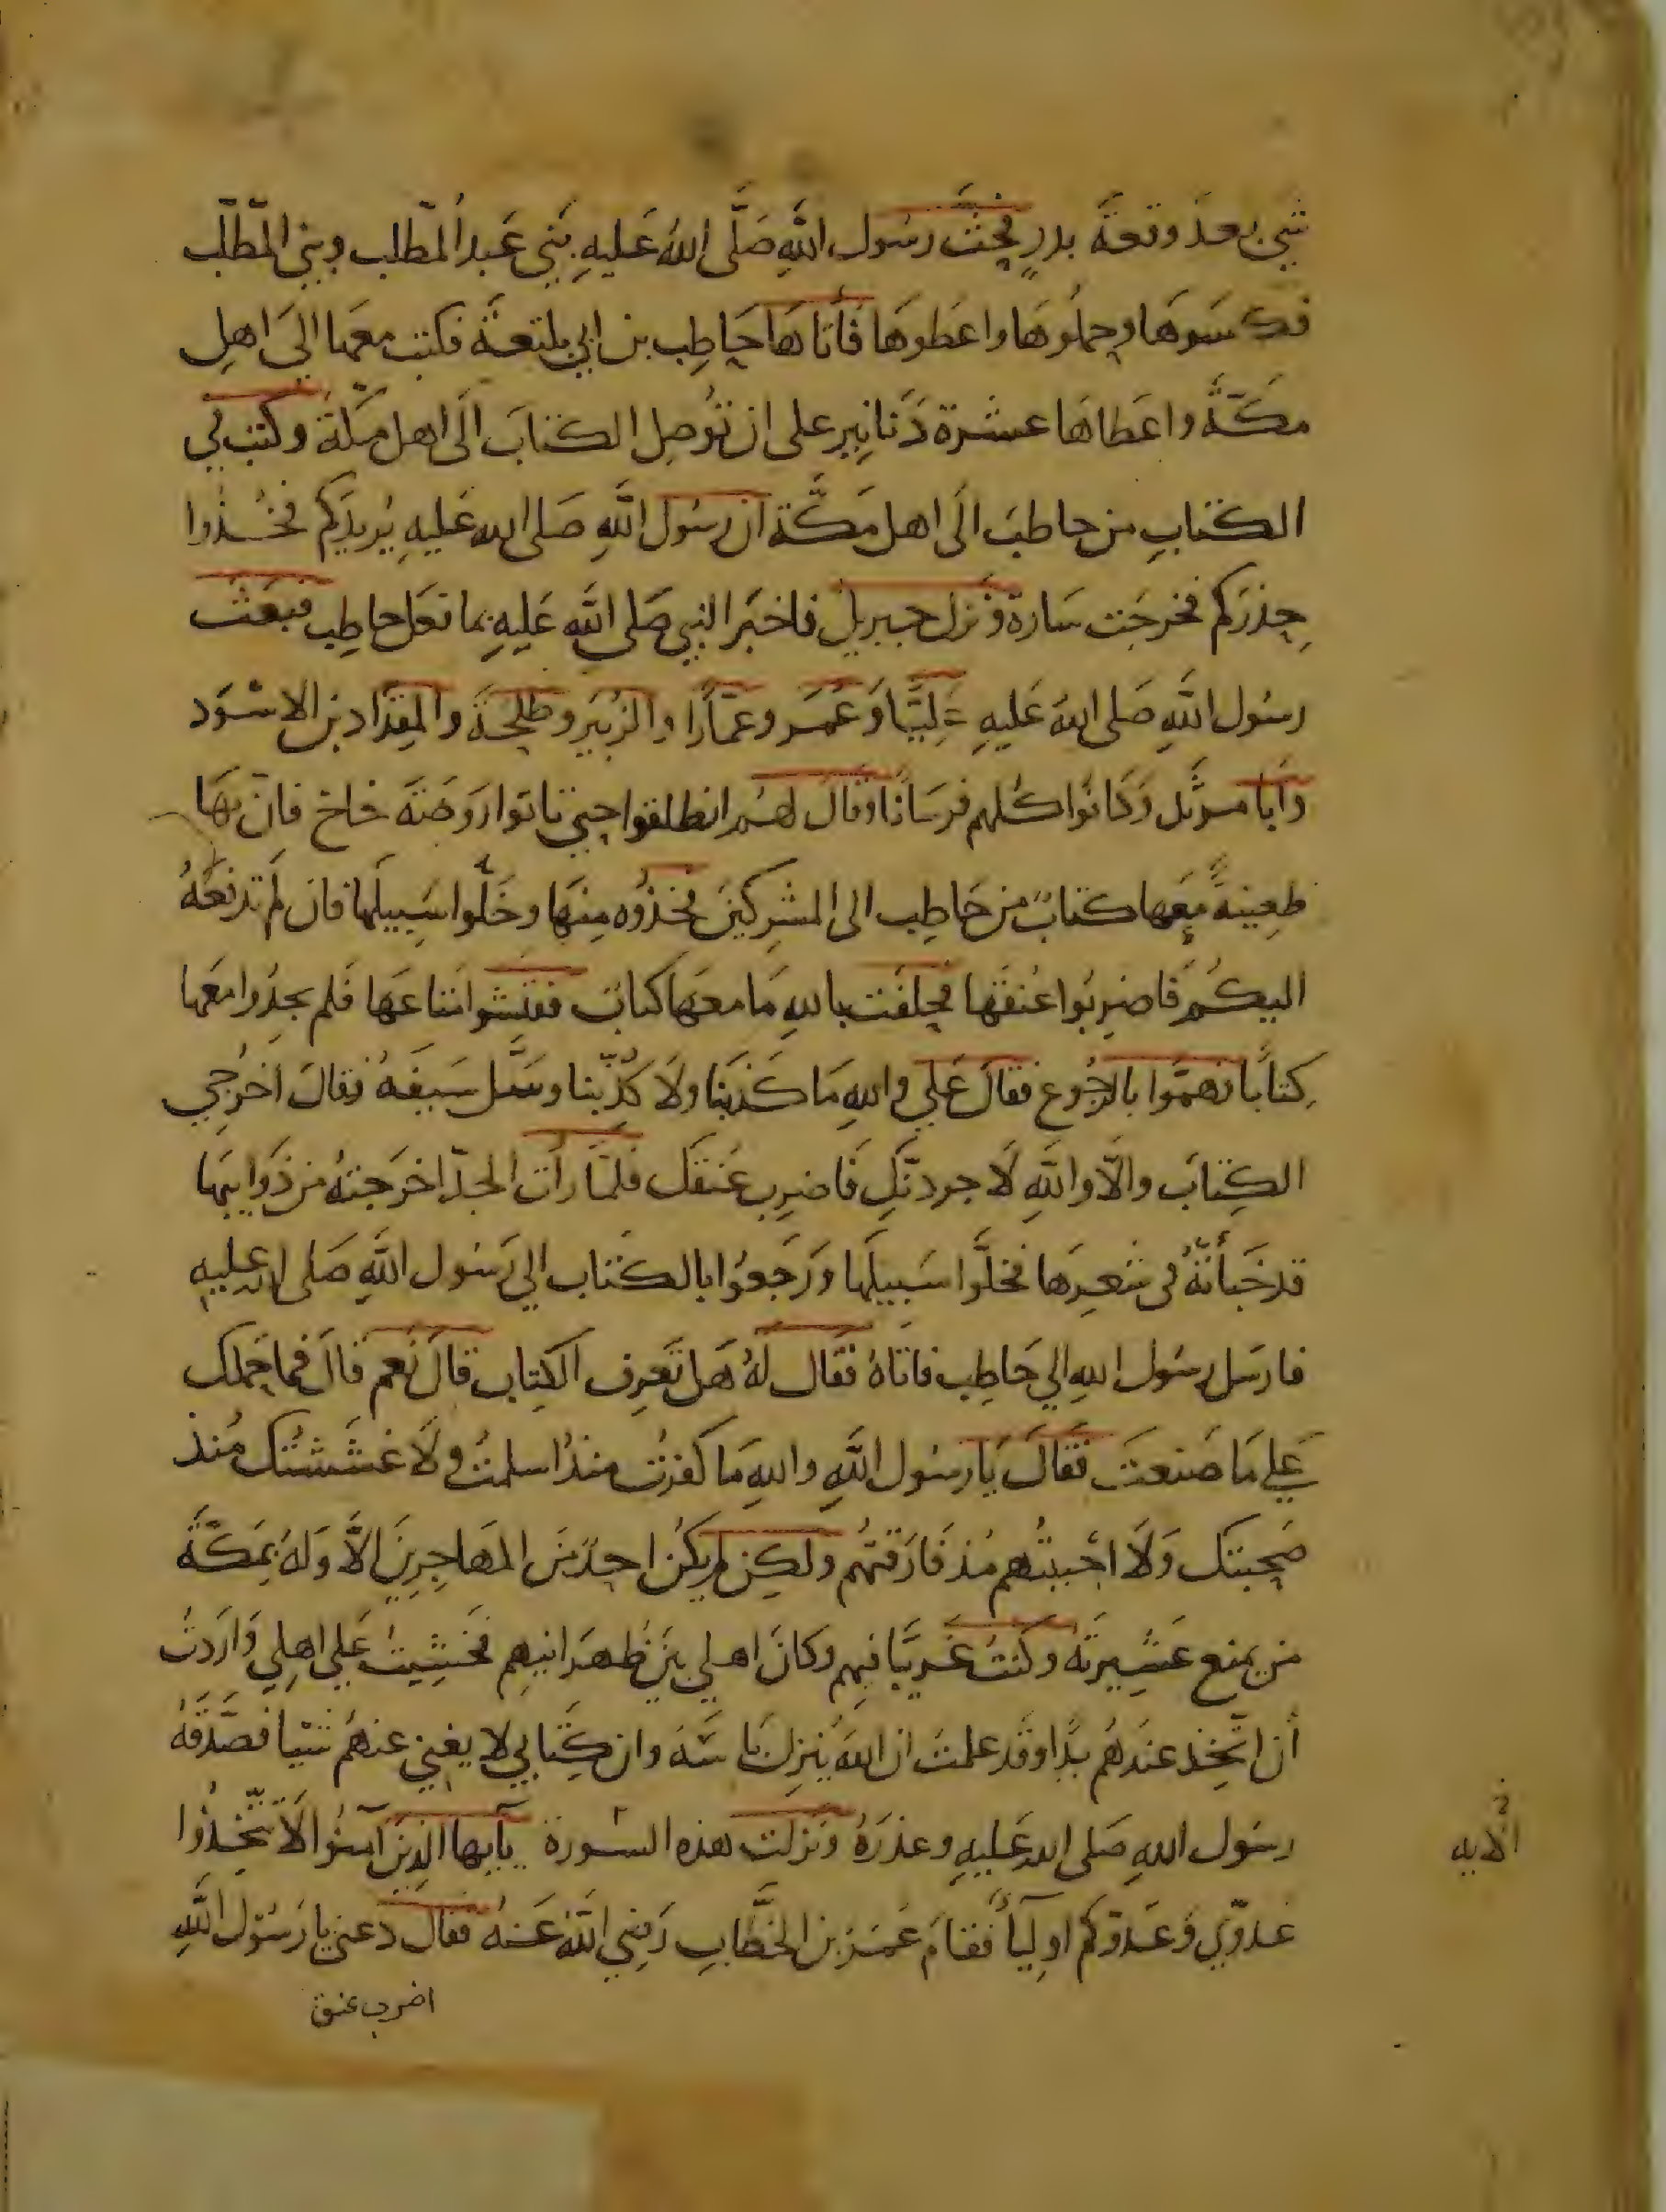 شيء بعد وقعة بدرٍ فحثّ رسول الله صَلَّى اللهُ عَليهِ بَني عَبد المطّلب وبني المطّلب
فكسَوهَا وحملُوهَا واعَطوهَا فأتاهَا حَاطِب بن ابي بلتعَة فكتب معَها الىَ اهلِ
مكّةَ واعَطاهَا عشرة دَنانِير على ان تُوصِل الكتابَ الَى اهل مكّةَ وكتب في
الكتابِ من حاطبَ الَى اهل مَكَّة ان رسُول اللهِ صَلى الله عَليهِ يُريدكم فخُذوا
حِذرَكم فخرجَت سَارة ونزل جبريل فاخبَر النبي صَلى الله عَليهِ بما فعَل حاطِب فبعَث
رسُول اللهِ صَلى اللهُ عَليهِ عَلِيًّا وَعُمَر وعمّارًا والزبَير وطلحَة والمقدَاد بن الاسْوَد
وأبا مرثَد وَكانوُا كلهم فرسَانًا وقال لهُم انطلقوا حتي تاتوا روَضَة خاخ فانّ بهَا
ظعِينةً معَها كتابٌ من حَاطِب الى المشرِكينَ فخذوُه مِنهَا وخَلّوا سَبيلَها فان لم تدفعَهُ
اليكُم فَاضرِبُوا عُنقَها فحلفَت باللهِ مَا معهَا كتابٌ ففتشوا متاعَها فَلم يجدُوا معَها
كِتابًا فهمّوا بالرجُوع فقالَ عَلي واللهِ مَا كذبَنا ولَا كُذِّبنا وسَّل سَيفَهُ فقالَ اخرُجي
الكِتابَ والّا واللهِ لَاجردنّكِ فَاضرِب عُنقكِ فلمّا رأت الجدّ اخرَجتهُ من ذَوَايبهَا
قد خَبأتهُ في شعرِهَا فخلَّوا سَبيلَها وَرَجعوُا بالكتاب الي رَسُول اللهِ صَلى الله عليه
فارسَل رسُول اللهِ الي حَاطِب فاتاهُ فقال لهُ هَل تَعرِف الكِتاب قالَ نَعم قالَ فما حَملك
عَلي مَا صَنعتَ فقالَ يَا رسُول اللهِ واللهِ مَا كفرُت منذُ اسلمتُ ولَا غشَشتُك مُنذ
صَحِبتك وَلَا احْببتُهم مُذ فَارقتهُم ولكِن لم يكُن احدٌ مِن المهَاجِرينَ الّا وَلهُ بمَكّةَ
من يمنع عَشِيرتَه وكنتُ غَريبًا فيهم وكانَ اهلي بَين ظهَرانيهِم فخشِيتُ عَلي اهلِي وَاردَتُ
أن اتّخِذ عندهُم يدًا وقَد علمتُ ان اللهَ يُنزِل بَاسَهُ وان كِتابي لا يغني عنهُم شيا فصَدّقهُ
رسُول اللهِ صَلى الله عَليهِ وعذرَهُ ونزلت هذه السُورة يآيها الذينَ آمنوا لَا تتّخِذُوا
عَدوّي وَعَدوّكم اوليآَ فقامَ عُمَر بن الخطَّابِ رَضي اللهُ عَنهُ فقال دعني يا رَسُول اللهِ
اضرب عنق
الايه